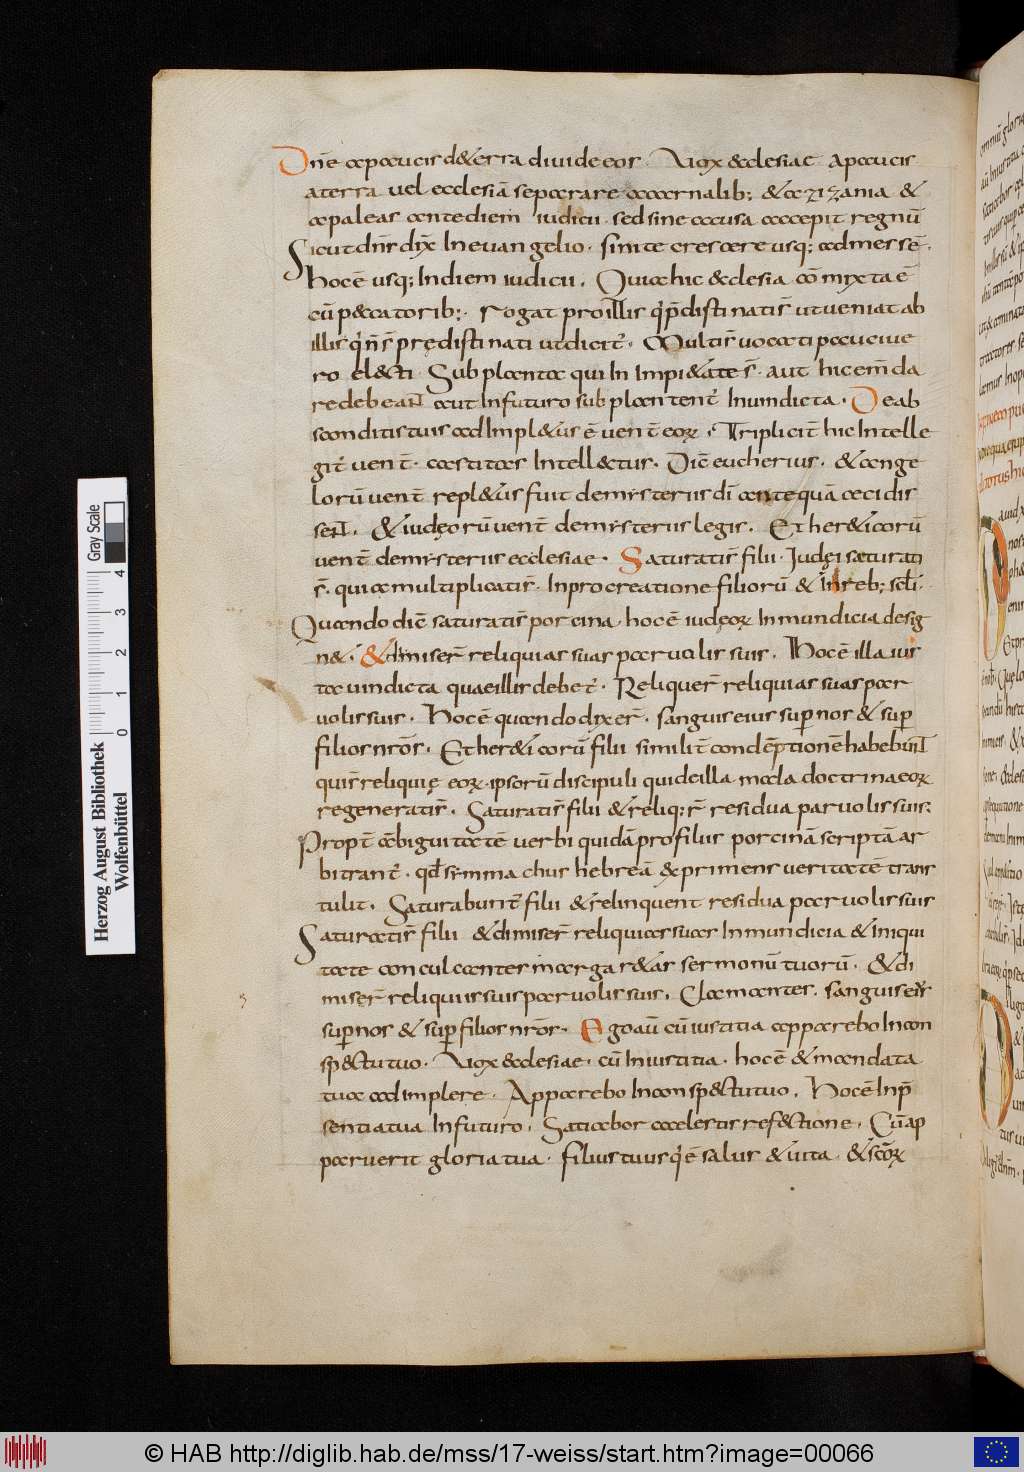 Dn̄e apaucis d&erra diuide eos · Uox &clesiae apaucis
aterra uel ecclesiā separare acarnalib; & azizania &
apaleas ante diem iudicii · sed sine causa accepit regnū
Sicut dn̄s dix̄ In euangelio · sinite crescere usq; admessē ·
hoc ē usq; Indiem iudicii · Quia hic &clesia cōmyxta ē
cū p&catorib; · rogat proillis q̇ p̄distinati s̄t ut ueniat ab
illis q̇ n̄ s̄t prędistinati ut dicit̄ · Multi s̄t uocati pauci ue
ro el&ti · Subplanta qui In Impi&ate s̄t · aut hic em̄da
re debeant aut Infuturo subplantent̄ Inuindicta · De ab
sconditis tuis adimpl&us ē uent̄ eoꝝ · Triplicit̄ hic Intelle
git̄ uent̄ · castitas Intell&tus · Dic̄ eucherius · & ange
lorū uent̄ repl&us fuit demysteriis dī antequā cecidis
sent · & iudęorū uent̄ demysteriis legis · Et her&icorū
uent̄ demysteriis ecclesiae · Saturati s̄t filii · Iudęi saturati
s̄t · qui amultiplicati s̄t · Inprocreatione filiorū & Inreb; scl̄i ·
Quando dic̄ saturati s̄t porcina · hoc ē iudęoꝝ Inmundicia desig
n& · & dimiser̄ reliquias suas paruulis suis · Hoc ē illa ius
ta uindicta quae illis debet̄ · Reliquer̄ reliquias suas par
uolis suis · Hoc ē quando dixer̄ · sanguis eius sup nos & sup
filios nr̄os · Et her&icorū filii simili t̄ condēptionē habebunt
qui s̄t reliquię eoꝝ · ipsorū discipuli qui deilla mala doctrina eoꝝ
regenerati s̄t · Saturati s̄t filii & reliq;r̄ residua paruolis suis;
Propt̄ ābiguitatē uerbi quidā pro filiis porcinā scriptā ar
bitrant̄ · qd̄ symmachus hebreā exprimens ueritatē trans
tulit · Saturabunt̄ filii & relinquent residua paruolis suis
Saturati s̄t filii & dimiser̄ reliquias suas Inmundicia & Iniqui
tate conculcantes margar&as sermonū tuorū · & di
miser̄ reliquiis suis paruolis suis · Clamantes · sanguis eius
sup nos & sup filios nr̄os · Ego aū cū iustitia apparebo Incon
sp&tu tuo · Uox &clesiae · cū Iniustitia · hoc ē & mandata
tua adimplere · Apparebo Inconsp&tu tuo · Hoc ē Inp̄
sentia tua Infuturo · Satiabor caelestis ref&tione · Cū ap
paruerit gloria tua · filius tuus q̇ ē salus & uita · & scōꝝ
Gray Scale
0 1 2 3 4
Herzog August Bibliothek
Wolfenbüttel
© HAB http://diglib.hab.de/mss/17-weiss/start.htm?image=00066